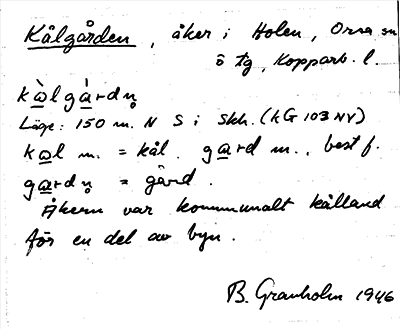 Kålgården, åker i Holen, Orsa sn
ö tg, Kopparb. l.
kὰlgὰrdn̥
Läge: 150 m. N S i Skh. (kG 103 NV)
kαl m. = kål. gαrd m., best f.
gαrdn̥ = gård.
Åkern var kommunalt kålland
för en del av byn.
B. Granholm 1946